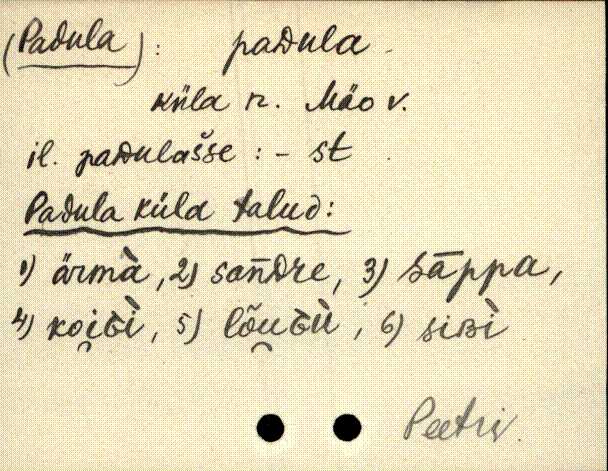 (Padula): paDula.
küla n. Mäo v.
il. paDulašse : - st.
Padula küla talud:
1) ärmà, 2) san̄Dre, 3) sāppa,
4) koi̯Bì, 5) lõu̯Bù, 6) sisì
Peetri.